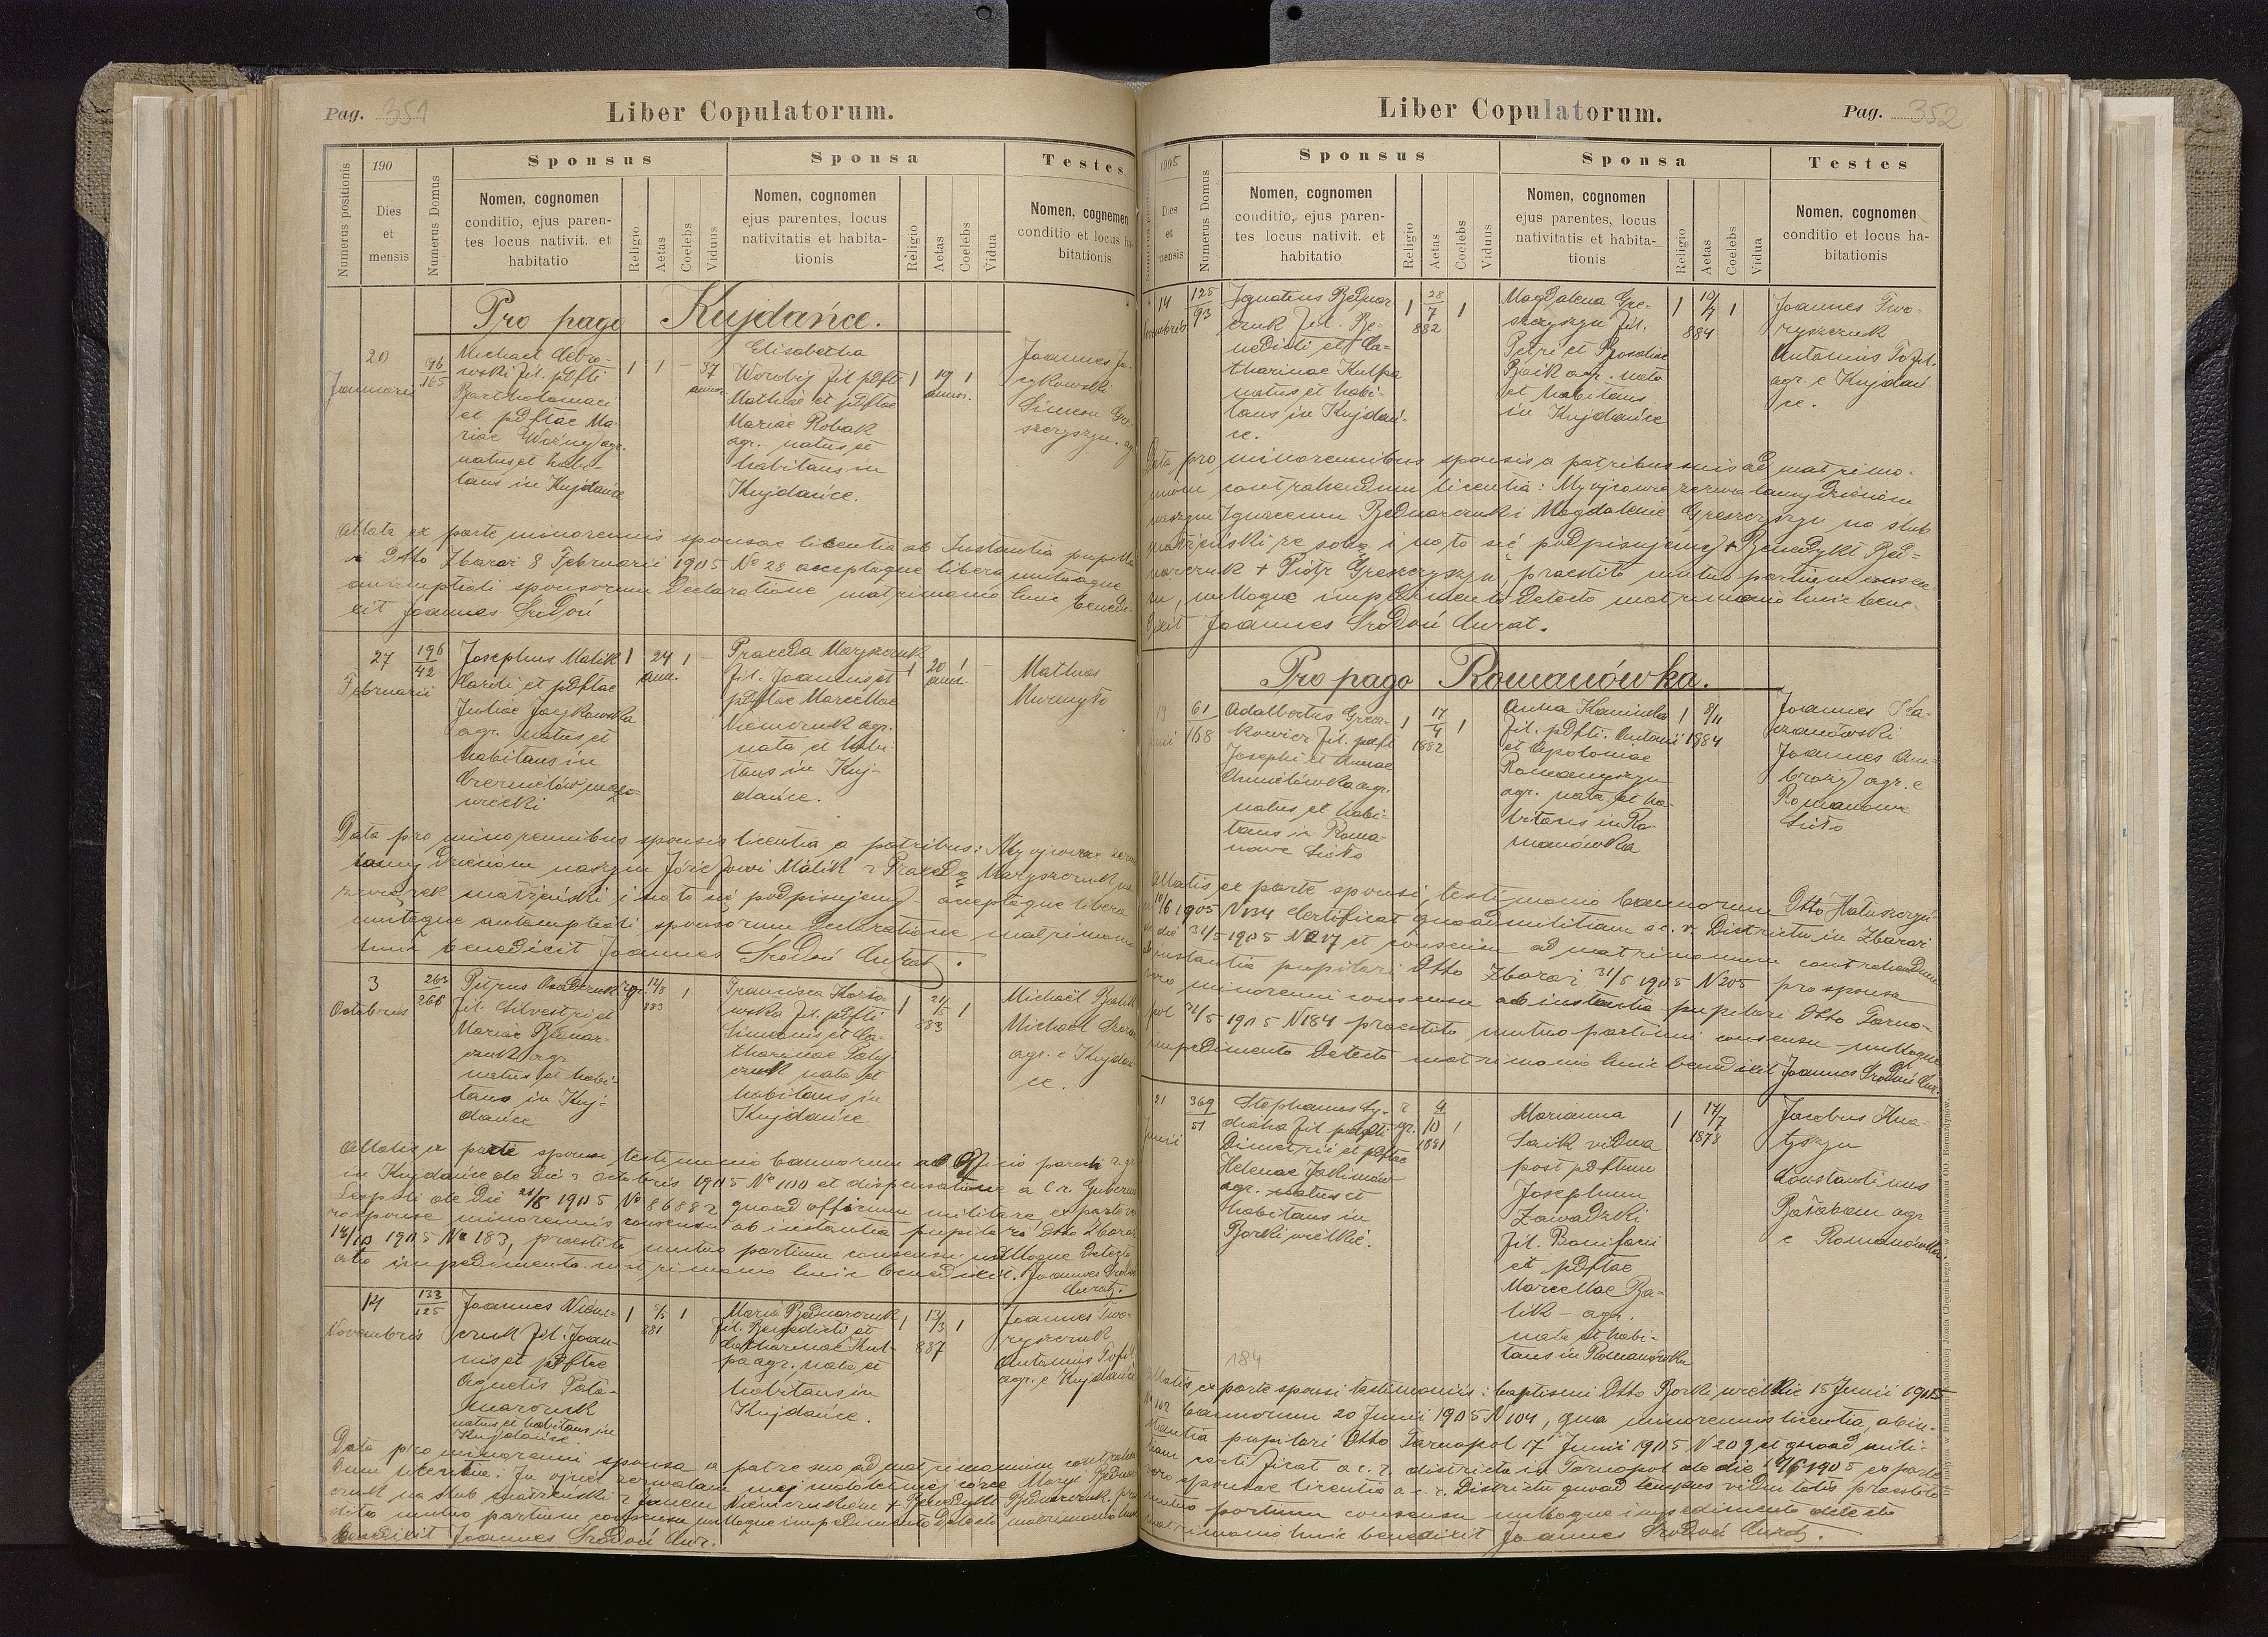 Pag. 351
Liber Copulatorum.
Numerus positionis
190
Dies
et
mensis
Numerus Domus
Sponsus
Nomen, cognomen
conditio, ejus paren-
tes locus nativit. et
habitatio
Religio
Aetas
Coelebs
Viduus
Sponsa
Nomen, cognomen
ejus parentes, locus
nativitatis et habita-
tionis
Religio
Aetas
Coelebs
Vidua
Testes
Nomen, cognemen
conditio et locus ha-
bitationis
Pro pago Kujdańce.
20
Januarii
196
165
Michael
wski fil. pdfti
Bartholomaei
et pdftae Ma-
riae Woźny agr.
natus et habi-
tans in Kujdańce
1
1
37
annor.
Elisabetha
Worobij fil pdfti
Mathiae et pdftae
Mariae Robak
agr. natus et
habitans in
Kujdańce.
1
19
annor.
1
Joannes Ja-
cykowski
Simeon Gre-
szczyszyn. agr
Allata ex parte minorennis sponsae licentia ab Instantia pupilla
Dtto Zbaraż 8 Februarii 1905 No 28 acceptaque libera mutuaque
sponsorum Declaratione matrimonio huic benedi-
xit Joannes Srodoń
27
Februarii
196
42
Josephus Malik
Caroli et pdftae
Juliae Jacykowska
agr. natus et
habitans in
mazo-
wiecki
1
24
ann.
1
Praxeda Maryszczuk
fil. Joannis et
pdftae Marcellae
Niemczuk agr.
nata et habi
tans in Kuj-
dańce.
1
20
ann.
1
Mathias
Murmyło
Data pro minorennibus sponsis licentia a patribus: My ojcowie zezwa
lamy dzieciom naszym Józefowi Malik i Praxedą Maryszczuk na
związek małżeński i na to się podpisujemy - acceptaque libera
mutuaque sponsorum Declaratione matrimonio
huic benedixit Joannes Srodoń Curat.
3
Octobris
263
266
Petrus
fil. Silvestri et
Mariae Bednar-
czuk agr
natus et habi-
tans in Kuj-
dańce
r. gr.
12/8
883
1
Francisca
wska fil. pdfti
Simonis et Ca-
tharinae Paly
czuk nata et
habitans in
Kujdańce
1
21/5
883
1
Michaël Balik
Michael
agr. e Kujdań
ce.
Allatis ex parte sponsi testimonio bannorum ab Officio paroch r. gr.
in Kujdańce de die 2 Octobris 1905 No 1100 et dispensatione a C. r. Gubernio
Leopoli de die 21/8 1905 No 86882 quoad officium militare ex parte ve
ro sponsae minorennis consensu ab instantia pupilari Dtto Zbaraż
14/10 1905 No 183, praestito mutuo partium consensu nulloque detecto
impedimento matrimonio huic benedixit. Joannes Srodoń
Curat.
14
Novembris
133
125
Joannes Niem-
czuk fil. Joan-
nis et pdftae
Agnetis Pała-
maarczuk
natus et habitans in
Kujdańce.
1
881
1
Maria Bednarczuk
fil. Benedicti et
Catharinae Kul-
pa agr. nata et
habitans in
Kujdańce.
1
13/3
887
1
Joannes Two-
ryszczuk
Antonius Tofil
agr. e Kujdańce
Data pro minorenni sponsa a patre suo ad matrimonium contrahen
dum licentia: Ja ojciec zezwalam mej małoletniej córce Maryi Bednar
czuk na ślub małżeński z Janem Niemczukiem + Benedykt Bednarczuk. prae
stito mutuo partium consensu nulloque impedimento detecto matrimonio huic
benedixit Joannes Srodoń Cur.
Pag. 352
Liber Copulatorum.
1905
Dies
et
mensis
Numerus Domus
Sponsus
Nomen, cognomen
conditio, ejus paren-
tes locus nativit. et
habitatio
Religio
Aetas
Coelebs
Viduus
Sponsa
Nomen, cognomen
ejus parentes, locus
nativitatis et habita-
tionis
Religio
Aetas
Coelebs
Vidua
Testes
Nomen, cognomen
conditio et locus ha-
bitationis
14
Novembris
125
93
Ignatius Bednar
czuk fil. Be-
nedicti et Ca-
tharinae Kulpa
natus et habi-
tans in Kujdań-
ce.
1
28
7
882
1
Magdalena Gre-
szczyszyn fil.
Petri et Rosaliae
Baik agr. nata
et habitans
in Kujdańce
1
10/7
884
1
Joannes Two-
ryszczuk
Antonius Tofil.
agr. e Kujdań-
ce.
Data pro minorennibus sponsis a patribus suis ad matrimo-
nium contrahendum licentia: My ojcowie zezwalamy dzieciom
naszym Ignacemu Bednarczuk i Magdalenie Greszczyszyn na ślub
małżeński ze sobą i na to się podpisujemy + Benedykt Bed-
narczuk + Piotr Greszczyszyn, praestito mutuo partium consen-
su, nulloque impedimento detecto matrimonio huic bene-
dixit Joannes Srodoń Curat.
Pro pago Romanówka.
19
Junii
61
168
Adalbertus
kowicz fil. pdft
Josephi et Annae
Chmielówka agr.
natus et habi-
tans in Roma-
nowe Sioło
1
17
4
1882
1
Anna Kaminska
fil. pdfti. Antonii
et Apoloniae
Romanyszyn
agr. nata et ha-
bitans in Ro-
manówka
1
8/11
1884
Joannes
czanowski
Joannes Am-
broży agr. e
Romanowe
Sioło
Allatis ex parte sponsi, testimonio bannorum Dtto Hałuszczyń-
10/6 1905 N134 Certificat quoad militiam a c. r. Districtu in Zbaraż
de die 31/5 1905 N217 et consensu ad matrimonium contrahendum
ab instantia pupilari Dtto Zbaraż 31/5 1905 N205 pro sponsa
vero minorenni consensu ab instantia pupilari Dtto Tarno-
pol 31/5 1905 N184 praestito mutuo partium consensu - nulloque
impedimento detecto matrimonio huic benedixit Joannes Srodoń Cur.
21
Junii
369
51
Stephanus Ły-
draha fil pdfti
Dimetrii et pdftae
Helenae Jakimów
agr. natus et
habitans in
Borki wielkie.
r.
gr.
4
10
1881
1
Marianna
Saik vidua
post pdftum
Josephum
Zawadzki
fil. Bonifacii
et pdftae
Marcellae Ba-
lik - agr.
nata et habi-
tans in Romanówka
1
17/7
1878
Jacobus Hna-
tyszyn
Constantinus
Bałaban agr
e Romanówka.
184
Allatis ex parte sponsi testimoniis: baptismi Dtto Borki wielkie 15 Junii 1905
N 162 bannorum 20 Junii 1905 N104, qua minorennis licentia, ab in-
stantia pupilari Dtto Tarnopol 17 Junii 1905 N 209 et quoad mili-
tiam certificat a c. r. districtu in Tarnopol de die 1905 ex parte
vero sponsae licentia a c. r. Districtu quoad tempus viduitatis praestito
mutuo partium consensu nulloque impedimento detecto
matrimonio huic benedixit Joannes Srodoń Curat.